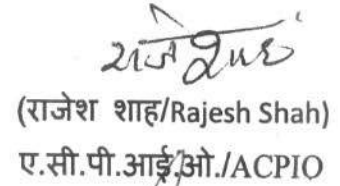 राजेश शाह
(राजेश शाह/Rajesh Shah)
ए.सी.पी.आई.ओ./ACPIO